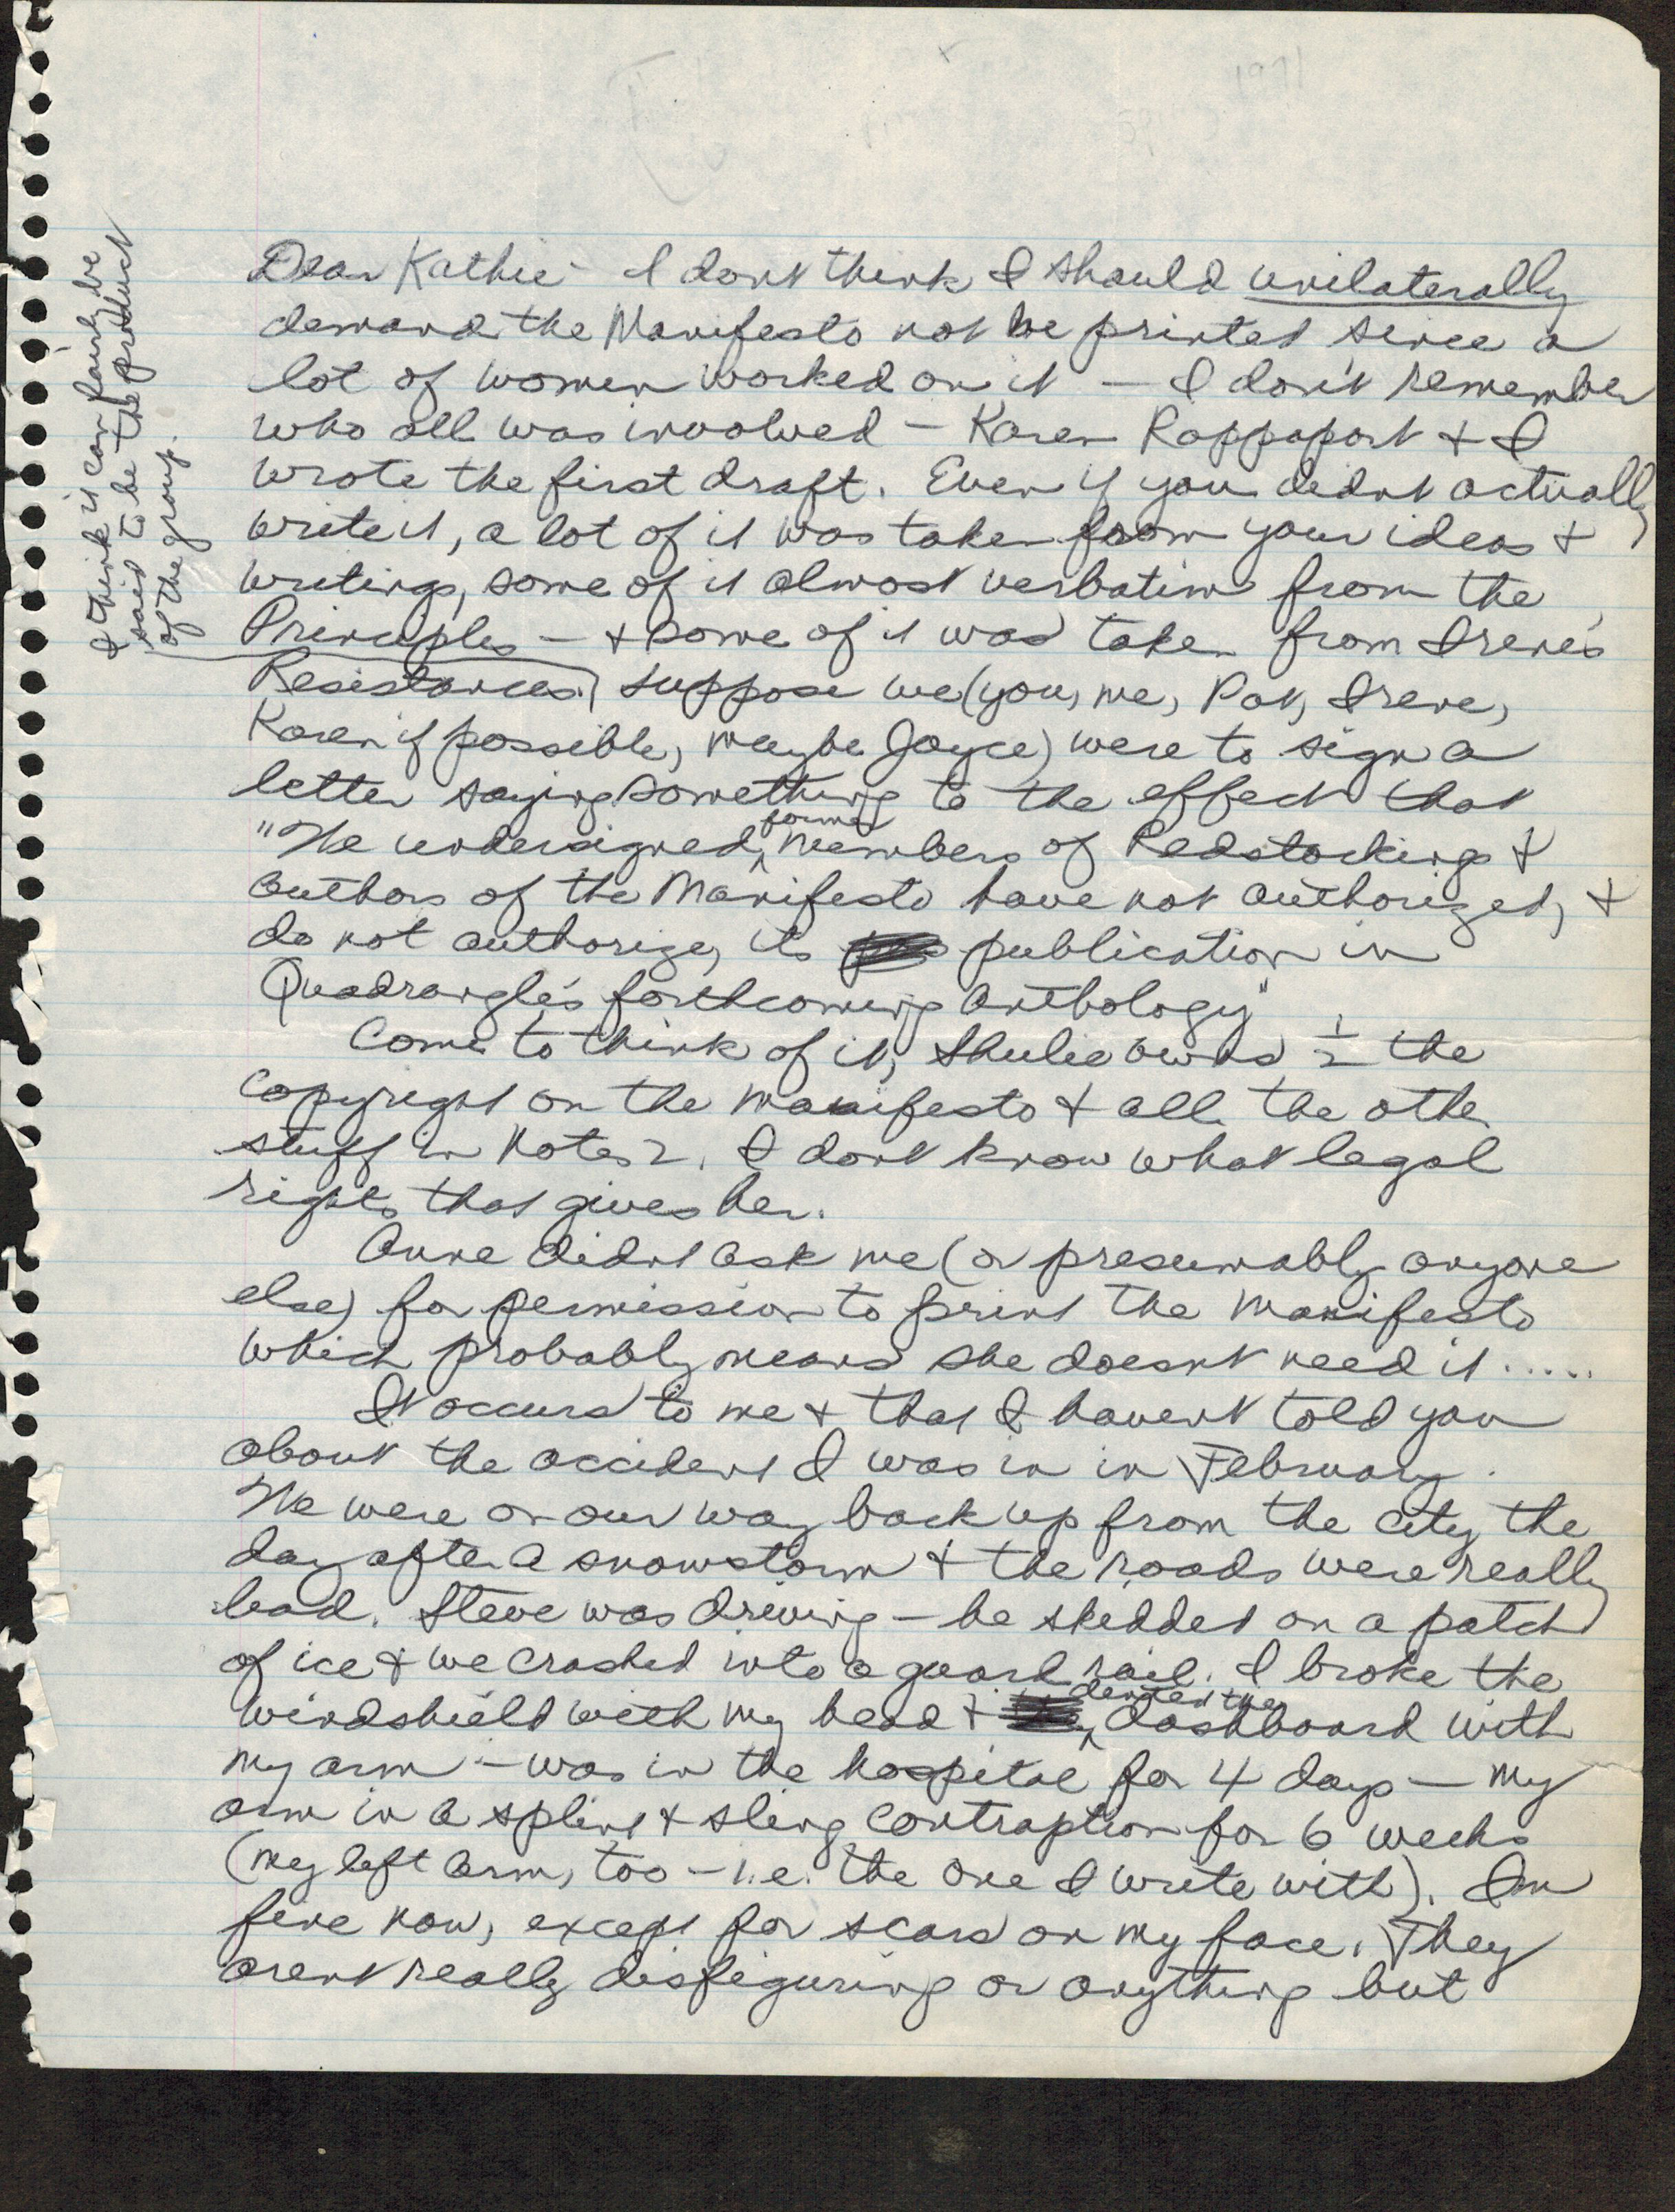 Dear Kathie - I dont think I should unilaterally
demand the Manifesto not be printed since a
lot of women worked on it — I don't remember
who all was involved — Karen Rappaport & I
wrote the first draft. Even if you didnt actually
write it, a lot of it was taken from your ideas &
writings, some of it almost verbatim from the
Principles — & some of it was taken from Irene's
Resistances. Suppose we (you, me, Pat, Irene,
Karen if possible, maybe Joyce) were to sign a
letter saying something to the effect that
"We undersigned, former members of Redstockings &
authors of the Manifesto have not authorized, &
do not authorize, its publication in
Quadrangle's forthcoming anthology"
Come to think of it, Shulie owns ½ the
copyright on the manifesto & all the other
stuff in Notes 2. I dont know what legal
rights that gives her.
Anne didnt ask me (or presumably anyone
else) for permission to print the manifesto
which probably means she doesnt need it.....
It occurs to me & that I havent told you
about the accident I was in in February.
We were on our way back up from the city the
day after a snowstorm & the roads were really
bad. Steve was driving — he skidded on a patch
of ice & we crashed into a guard rail. I broke the
windshield with my head & dented the dashboard with
my arm — was in the hospital for 4 days — my
arm in a splint & sling contraption for 6 weeks
(my left arm, too — i.e. the one I write with). Im
fine now, except for scars on my face. They
arent really disfiguring or anything but
I think it can fairly be
said to be the product
of the group.
1971